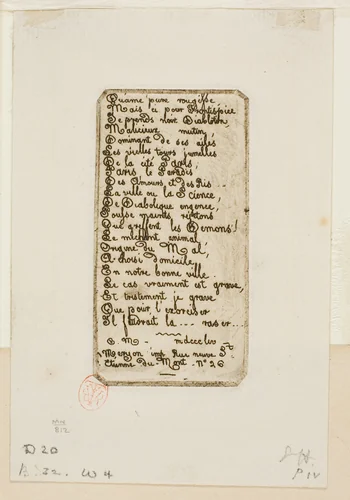 Qu'ame pure rougisse
Mais ci pour Frontispice
Je prends noir Diablotin,
Malicieux mutin,
Dominant de ses ailes
Les vielles tours jumelles
De la cité Paris,
Paris le Paradis
Des Amours et des Ris...
La ville ou la Science,
De Diabolique engence,
Pousse maints rejetons
Que greffent les Démons!
Le méchant animal
Origine du Mal,
A choisi domicile
En notre bonne ville...
Le cas vraiment est grave,
Et tristement je grave
Que pour l'exorciser
Il faudrait la .... raser....
C. M. mdccclıv
Meryon imp. Rue neuve St.
Etienne du-Mont. No 26
D 20
B. 32. W 4
P IV